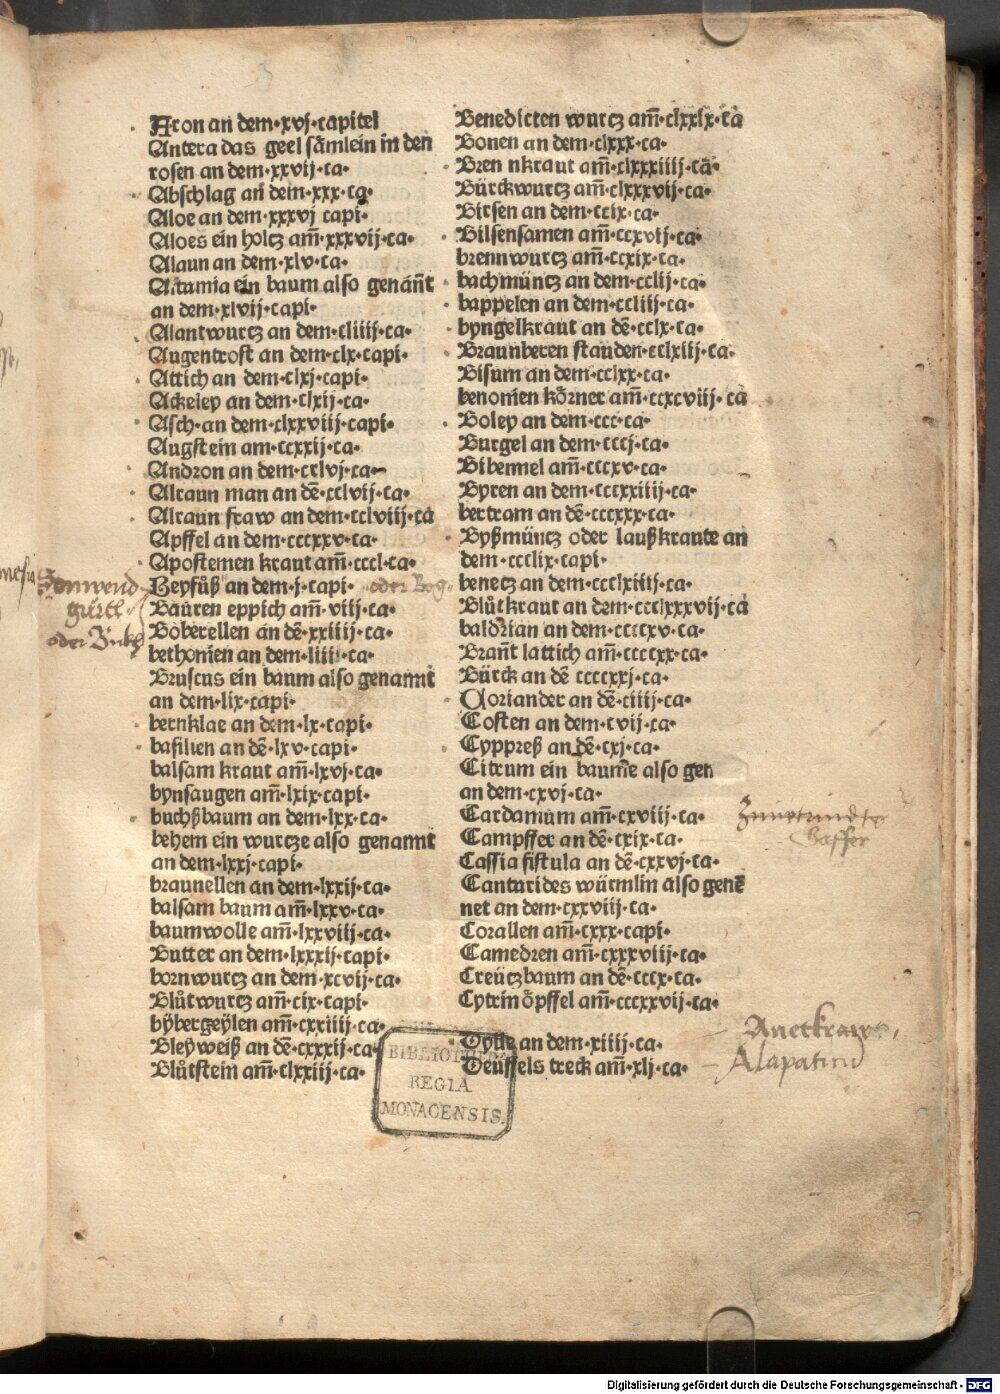 Aron an dem·xvj·capitel
Antera das geel sämlein in den
rosen an dem·xxvij·ca·
Abschlag an dem·xxx·ca·
Aloe an dem·xxxvj capi·
Aloes ein holtz am̃·xxxvij·ca·
Alaun an dem·xlv·ca·
ein baum also genañt
an dem·xlvij·capi·
Alantwurtz an dem·cliiij·ca·
Augentrost an dem·clx·capi·
Attich an dem·clxj·capi·
Ackeley an dem·clxij·ca·
Asch·an dem·clxxviij·capi·
Augstein am·ccxxij·ca·
Andron an dem·ccxlvj·ca·
Alraun man an dē·cclvij·ca·
Alraun fraw an dem·cclviij·ca
Apffel an dem·cccxxv·ca·
Apostemen kraut am̃·cccl·ca·
Beyfůß an dem·j·capi· oder Bog
Bauren eppich am̃·viij·ca·
Boberellen an dē·xxiiij·ca·
bethonien an dem·liiij·ca·
Bruscus ein baum also genannt
an dem·lix·capi·
bernklae an dem·lx·capi·
basilien an dē·lxv·capi·
balsam kraut am̃·lxvj·ca·
bynsaugen am̃·lxix·capi·
buchßbaum an dem·lxx·ca·
behem ein wurtze also genannt
an dem·lxxj·capi·
braunellen an dem·lxxij·ca·
balsam baum am̃·lxxv·ca·
baumwolle am̃·lxxviij·ca·
Butter an dem·lxxxij·capi·
bornwurtz an dem·xcvij·ca·
Blůtwurtz am̃·cix·capi·
bybergeylen am̃·cxxiiij·ca·
Bleyweiß an dē·cxxxij·ca·
Blůtstein am̃·clxxiij·ca·
Benedicten wurtz am̃·clxxix·ca
Bonen an dem·clxxx·ca·
Bren nkraut am̃·clxxxiiij·ca·
Bürckwurtz am̃·clxxxvij·ca·
Birsen an dem·ccix·ca·
Bilsensamen am̃·ccxvij·ca·
brennwurtz am̃·ccxix·ca·
bachmüntz an dem·cclij·ca·
bappelen an dem·ccliij·ca·
byngelkraut an dē·cclx·ca·
Braunberen stauden·cclxiij·ca·
Bisum an dem·cclxx·ca·
benonien körner am̃·ccxcviij·ca
Boley an dem·ccc·ca·
Burgel an dem·cccj·ca·
Bibennel am̃·cccxv·ca·
Byren an dem·cccxxiiij·ca·
bertram an dē·cccxxx·ca·
Byßmüntz oder laußkraute an
dem·ccclix·capi·
benetz an dem·ccclxiiij·ca·
Blůtkraut an dem·ccclxxxvij·ca
baldrian an dem·ccccxv·ca·
Brañt lattich am̃·ccccxx·ca·
Bürck an dē ccccxxj·ca·
Coriander an dē·ciiij·ca·
Costen an dem·cvij·ca·
Cyppreß an dē·cxj·ca·
Citrum ein baume also gen
an dem·cxvj·ca·
Cardamům am̃·cxviij·ca·
Campffer an dē·cxix·ca·
Cassia fistula an dē·cxxvj·ca·
Canturides würmlin also genē
net an dem·cxxviij·ca·
Corallen am̃·cxxx·capi·
Camedren am̃·cxxxviij·ca·
Creützbaum an dē·cccx·ca·
Cytrin öpffel am̃·cccxxvij·ca·
Dylle an dem·xiiij·ca·
Deuffels treck am̃·xlj·ca·
Sonwend
gürtl
oder
BIBLIOTHECA
REGIA
MONACENSIS.
Digitalisierung gefördert durch die Deutsche Forschungsgemeinschaft · DFG